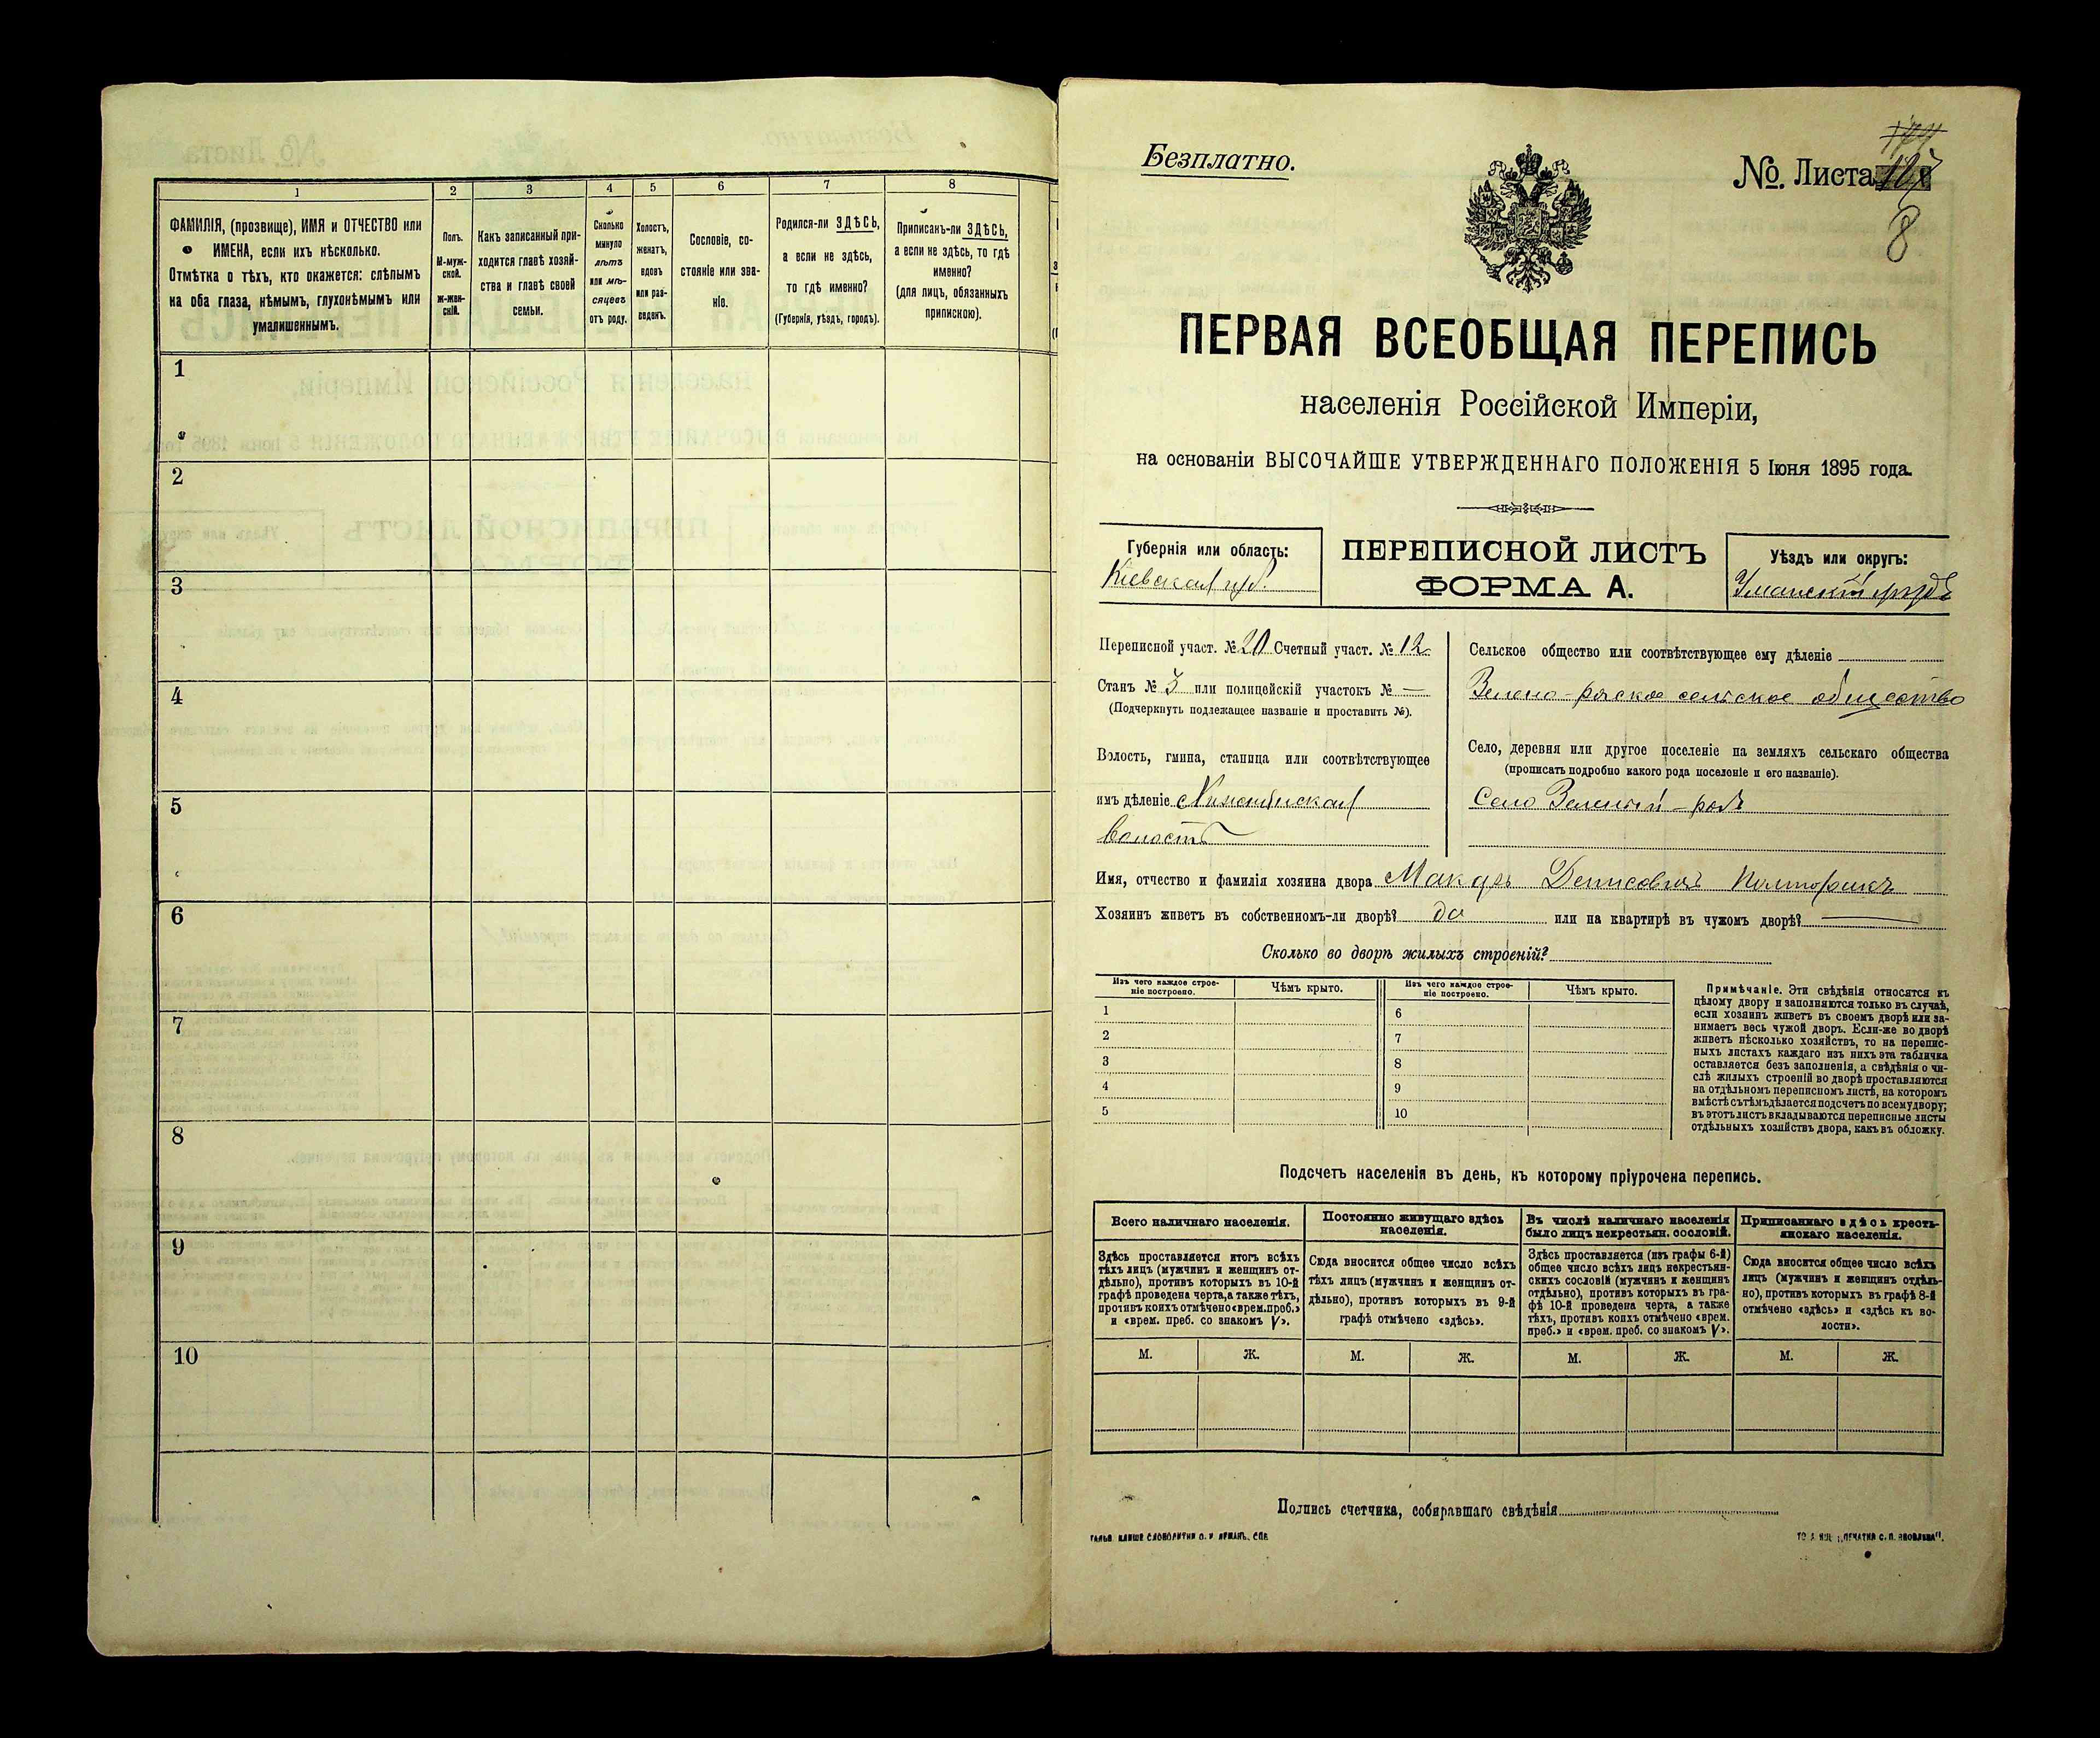 1 2 3 4 5 6 7 8
ФАМИЛІЯ, (прозвище), ИМЯ и ОТЧЕСТВО или
ИМЕНА, если ихъ нѣсколько.
Отмѣтка о тѣхъ, кто окажется: слѣпымъ
на оба глаза, нѣмымъ, глухонѣмымъ или
умалишеннымъ.
Полъ.
М-муж-
ской.
ж-жен-
скій.
Какъ записанный при-
ходится главѣ хозяй-
ства и главѣ своей
семьи.
Сколько
минуло
лѣтъ
или мѣ-
сяцевъ
отъ роду.
Холостъ,
женатъ,
вдовъ
или раз-
веденъ.
Сословіе, со-
стояніе или зва-
ніе.
Родился-ли ЗДѢСЬ,
а если не здѣсь,
то гдѣ именно?
(Губернія, уѣздъ, городъ).
Приписанъ-ли ЗДѢСЬ,
а если не здѣсь, то гдѣ
именно?
(для лицъ, обязанныхъ
припискою).
1
2
3
4
5
6
7
8
9
10
Безплатно.
№. Листа
8
ПЕРВАЯ ВСЕОБЩАЯ ПЕРЕПИСЬ
населенія Россійской Имперіи,
на основаніи ВЫСОЧАЙШЕ УТВЕРЖДЕННАГО ПОЛОЖЕНІЯ 5 Іюня 1895 года.
Губернія или область:
Кіевская губ.
ПЕРЕПИСНОЙ ЛИСТЪ
ФОРМА А.
Уѣздъ или округъ:
Уманскій уѣздъ
Переписной участ. № 20 Счетный участ. № 12
Станъ № 3 или полицейскій участокъ № —
(Подчеркнуть подлежащее названіе и проставить №).
Волость, гмина, станица или соотвѣтствующее
имъ дѣленіе
волость
Сельское общество или соотвѣтствующее ему дѣленіе
Зелено-рогское сельское общество
Село, деревня или другое поселеніе на земляхъ сельскаго общества
(прописать подробно какого рода поселеніе и его названіе).
Село Зеленый-рогъ
Имя, отчество и фамилія хозяина двора Макаръ Денисовичъ
Хозяинъ живетъ въ собственномъ-ли дворѣ? да или на квартирѣ въ чужомъ дворѣ? —
Сколько во дворѣ жилыхъ строеній?
Изъ чего каждое строе-
ніе построено.
Чѣмъ крыто.
Изъ чего каждое строе-
ніе построено.
Чѣмъ крыто.
1 6
2 7
3 8
4 9
5 10
Примѣчаніе. Эти свѣдѣнія относятся къ
цѣлому двору и заполняются только въ случаѣ,
если хозяинъ живетъ въ своемъ дворѣ или за-
нимаетъ весь чужой дворъ. Если-же во дворѣ
живетъ нѣсколько хозяйствъ, то на перепис-
ныхъ листахъ каждаго изъ нихъ эта табличка
оставляется безъ заполненія, а свѣдѣнія о чи-
слѣ жилыхъ строеній во дворѣ проставляются
на отдѣльномъ переписномъ листѣ, на которомъ
вмѣстѣ съ тѣмъ дѣлается подсчетъ по всему двору;
въ этотъ листъ вкладываются переписные листы
отдѣльныхъ хозяйствъ двора, какъ въ обложку.
Подсчетъ населенія въ день, къ которому пріурочена перепись.
Всего наличнаго населенія.
Здѣсь проставляется итогъ всѣхъ
тѣхъ лицъ (мужчинъ и женщинъ от-
дѣльно), противъ которыхъ въ 10-й
графѣ проведена черта, а также тѣхъ,
противъ коихъ отмѣчено «врем. преб.»
и «врем. преб. со знакомъ V».
Постоянно живущаго здѣсь
населенія.
Сюда вносится общее число всѣхъ
тѣхъ лицъ (мужчинъ и женщинъ от-
дѣльно), противъ которыхъ въ 9-й
графѣ отмѣчено «здѣсь».
Въ числѣ наличнаго населенія
было лицъ некрестьян. сословій.
Здѣсь проставляется (изъ графы 6-й)
общее число всѣхъ лицъ некрестьян-
скихъ сословій (мужчинъ и женщинъ
отдѣльно), противъ которыхъ въ гра-
фѣ 10-й проведена черта, а также
тѣхъ, противъ коихъ отмѣчено «врем.
преб.» и «врем. преб. со знакомъ V».
Приписаннаго здѣсь кресть-
янскаго населенія.
Сюда вносится общее число всѣхъ
лицъ (мужчинъ и женщинъ отдѣль-
но), противъ которыхъ въ графѣ 8-й
отмѣчено «здѣсь» и «здѣсь къ во-
лости».
М. Ж. М. Ж. М. Ж. М. Ж.
Подпись счетчика, собиравшаго свѣдѣнія